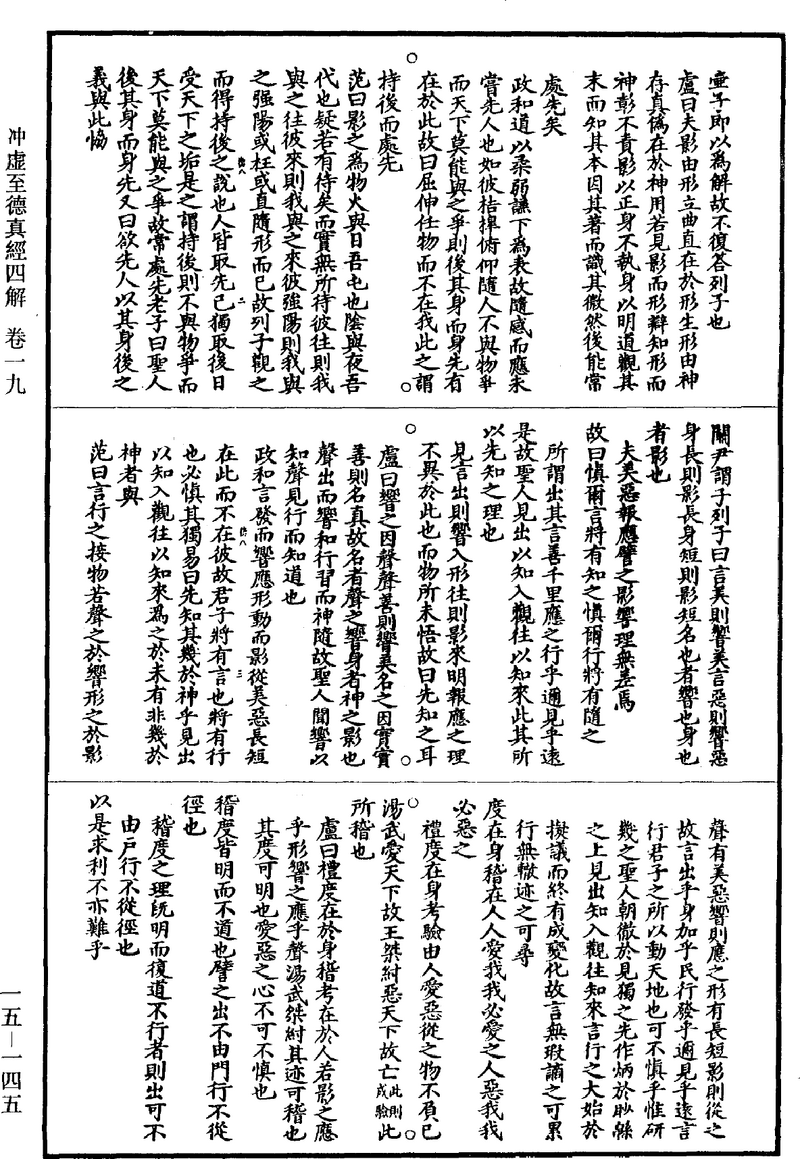 壺子即以為解故不復荅列子也
盧曰夫影由形立曲直在於形生形由神
存真偽在於神用若見影而形辯知形而
神彰不責影以正身不執身以明道觀其
末而知其本因其著而識其微然後能常
處先矣
政和道以柔弱謙下為表故隨感而應未
嘗先人也如彼桔槹俯仰隨人不與物爭
而天下莫能與之爭則後其身而身先有
在於此故曰屈伸任物而不在我此之謂
持後而處先
范曰影之為物火與日吾屯也陰與夜吾
代也疑若有待矣而實無所待彼往則我
與之往彼來則我與之來彼強陽則我與
之強陽或枉或直隨形而已故列子觀之
而得持後之說也人皆取先己獨取後曰
受天下之垢是之謂持後則不與物爭而
天下莫能與之爭故常處先老子曰聖人
後其身而身先又曰欲先人以其身後之
義與此恊
關尹謂子列子曰言美則響美言惡則響惡
身長則影長身短則影短名也者響也身也
者影也
夫美惡報應譬之影響理無差焉
故曰慎爾言將有知之慎爾行將有隨之
所謂出其言善千里應之行乎邇見乎遠
是故聖人見出以知入觀往以知來此其所
以先知之理也
見言出則響入形往則影來明報應之理
不異於此也而物所未悟故曰先知之耳
盧曰響之因聲聲善則響美名之因實實
善則名真故名者聲之響身者神之影也
聲出而響和行習而神隨故聖人聞響以
知聲見行而知道也
政和言發而響應形動而影從美惡長短
在此而不在彼故君子將有言也將有行
也必慎其獨易曰先知其幾於神乎見出
以知入觀往以知來為之於未有非幾於
神者與
范曰言行之接物若聲之於響形之於影
聲有美惡響則應之形有長短影則從之
故言出乎身加乎民行發乎邇見乎遠言
行君子之所以動天地也可不慎乎惟研
幾之聖人朝徹於見獨之先作炳於眇緜
之上見出知入觀往知來言行之大始於
擬議而終有成變化故言無瑕謫之可累
行無轍迹之可尋
度在身稽在人人愛我我必愛之人惡我我
必惡之
禮度在身考驗由人愛惡從之物不負已
湯武愛天下故王桀紂惡天下故亡此則成驗此
所稽也
盧曰禮度在於身稽考在於人若影之應
乎形響之應乎聲湯武桀紂其迹可稽也
其度可明也愛惡之心不可不慎也
稽度皆明而不道也譬之出不由門行不從
徑也
稽度之理既明而復道不行者則出可不
由戶行不從徑也
以是求利不亦難乎
冲虛至德真經四解 卷一九
一五—一四五